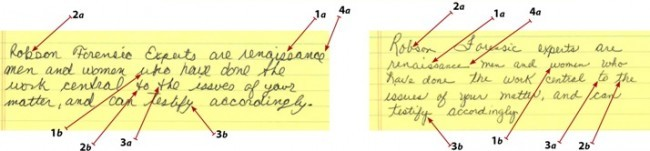 2a 1a 4a
Robson Forensic Experts are renaissance
men and women who have done the
work central to the issues of your
matter, and can testify accordingly.
1b 2b 3a 3b
2a 1a 4a
Robson Forensic experts are
renaissance men and women who
have done the work central to the
issues of your matter, and can
testify accordingly.
3b 1b 3a 2b